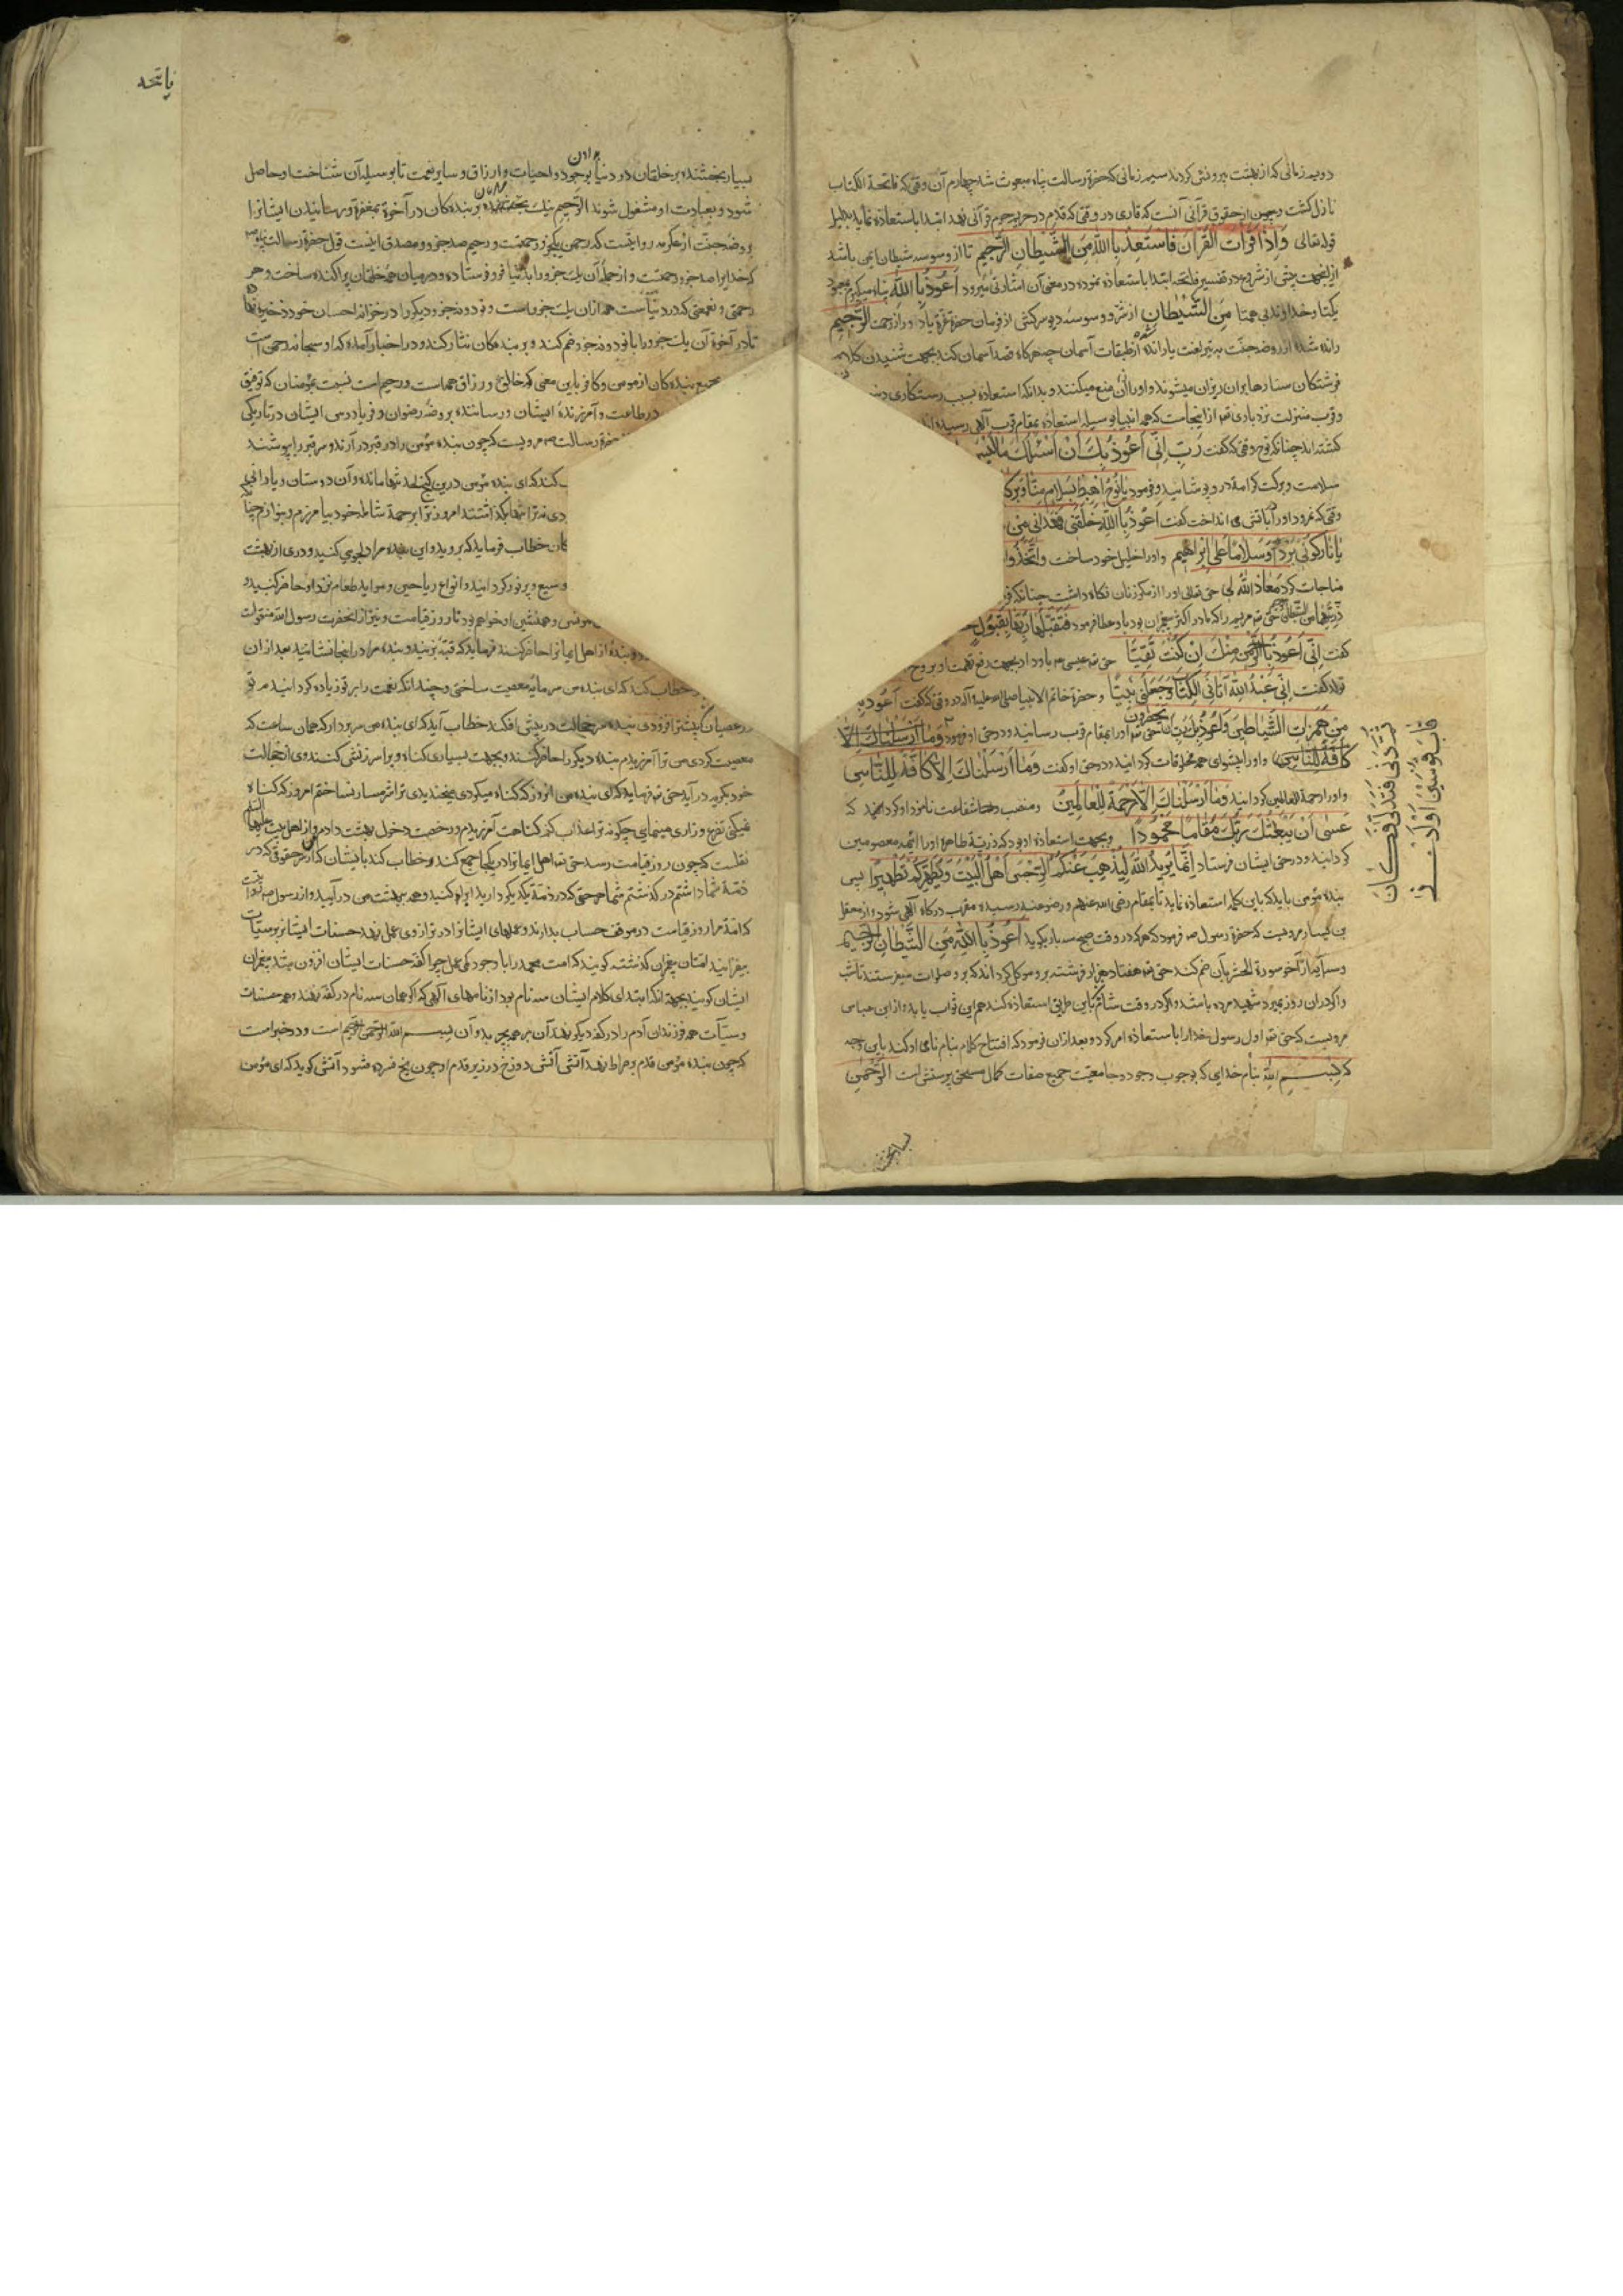 دویم زمانی که از بهشت بیرونش کردند سیم زمانی که حضرة رسالت پناه مبعوث شد چهارم آن وقتی که فاتحة الکتاب
نازل کشت وچون از حقوق قرآنی آنست که قاری در وقتی که قدم در حریم حرم قرآنی نهد ابتدا باستعاذه نماید بدلیل
قوله تعالی وَاِذَا قَرَأْتَ الْقُرْآنَ فَاسْتَعِذْ بِاللّٰهِ مِنَ الشَّیْطَانِ الرَّجِیمِ تا از وسوسه شیطان ایمن باشد
ازینجهت پیش از شروع در تفسیر فاتحه ابتدا باستعاذه نموده در معنی آن اشارتی میرود اَعُوذُ بِاللّٰهِ پناه میکیرم بمعبود
یکتا وخداوند بی همتا مِنَ الشَّیْطَانِ از شر و وسوسه دیو سرکش از فرمان حضرة عزة یاد دور از رحمت الرَّجِیمِ
رانده شده از روضه جنّت به تیر لعنت یا رانده از طبقات آسمان چه هرکاه قصد آسمان کند بجهت شنیدن کلام
فرشتکان ستارها بران ریزان میشوند و اورا ازان منع میکنند و بدانکه استعاذه سبب رستکاری
وقرب منزلت نزد باری تعالی از اینجاست که همه انبیا بوسیله استعاذه بمقام قرب آلهی رسیده
کشته اند چنانکه نوح وقتی که گفت رَبِّ اِنِّی اَعُوذُ بِکَ اَنْ اَسْئَلَکَ مَا لَیْسَ
سلامت و برکت کرامة در و پوشانید و فرمود یَا نُوحُ اهْبِطْ بِسَلَامٍ مِنَّا وَبَرَکَا
وقتی که نمرود اورا باتش می انداخت گفت اَعُوذُ بِاللّٰهِ خَلَقَنِی فَهَدَانِی مِنْ
یَا نَارُ کُونِی بَرْدًا وَسَلَامًا عَلَی اِبْرَاهِیمَ و اورا خلیل خود ساخت وَاتَّخَذَ
مناجات کرد مَعَاذَ اللّٰهِ حق تعالی اورا از مکر زنان نکاه داشت چنانکه
ذریتها من الشیطان حق تعالی مریم را که مادر اکثر پیغمبران بود باو عطا فرمود فَتَقَبَّلَهَا رَبُّهَا بِقَبُولٍ
گفت اِنِّی اَعُوذُ بِالرَّحْمٰنِ مِنْکَ اِنْ کُنْتَ تَقِیًّا حق تعالی عیسی را باو داد بجهت رفع تهمت او بروح
قوله گفت اِنِّی عَبْدُ اللّٰهِ آتَانِیَ الْکِتَابَ وَجَعَلَنِی نَبِیًّا و حضرة خاتم الانبیا صلی الله علیه وآله در وقتی که گفت اَعُوذُ بِکَ
مِنْ هَمَزَاتِ الشَّیَاطِینِ وَاَعُوذُ بِکَ رَبِّ اَنْ یَحْضُرُونِ حق تعالی اورا بمقام قرب رسانید و در حق او فرمود وَمَا اَرْسَلْنَاکَ اِلَّا
کَافَّةً لِلنَّاسِ و اورا پیشوای همه مخلوقات کردانید و در حق او کفت وَمَا اَرْسَلْنَاکَ اِلَّا کَافَّةً لِلنَّاسِ
و اورا رحمة للعالمین کردانید وَمَا اَرْسَلْنَاکَ اِلَّا رَحْمَةً لِلْعَالَمِینَ و منصب شفاعت نامزد او کردانید که
عَسٰی اَنْ یَبْعَثَکَ رَبُّکَ مَقَامًا مَحْمُودًا و بجهت استعاذه او بود که ذریة طاهرۀ اورا ائمه معصومین
کردانید و در حق ایشان فرستاد اِنَّمَا یُرِیدُ اللّٰهُ لِیُذْهِبَ عَنْکُمُ الرِّجْسَ اَهْلَ الْبَیْتِ وَیُطَهِّرَکُمْ تَطْهِیرًا پس
بنده مؤمن باید که باین کلمه استعاذه نماید تا بمقام رضی الله عنهم ورضوا عنه رسیده مقرب درکاه آلهی شود و از معقل
بن یسار مرویست که حضرة رسول صم فرمود که هرکه در وقت صبح سه بار بکوید اَعُوذُ بِاللّٰهِ مِنَ الشَّیْطَانِ الرَّجِیمِ
وسه آیه از آخر سورة الحشر بآن ضم کند حق تعالی هفتاد هزار فرشته برو موکل کرداند که برو صلوات میفرستند تا شب
و اکر دران روز بمیرد شهید مرده باشد و اکر در وقت شام باین طریق استعاذه کند هم این ثواب یابد و از ابن عباس
مرویست که حق تعالی اول رسول خدا را باستعاذه امر کرد و بعد ازان فرمود که افتتاح کلام بنام نامی او کند باین وجه
که بِسْمِ اللّٰهِ بنام خدایی که بوجوب وجود و جامعیّت جمیع صفات کمال مستحق پرستش است الرَّحْمٰنِ
ثُمَّ دَنٰی فَتَدَلّٰی فَکَانَ
قَابَ قَوْسَیْنِ اَوْ اَدْنٰی
بسیار بخشنده
فاتحه
بسیار بخشنده بر خلقان در دنیا بوجود و احیات و ارزاق و سایر نعمت تا بوسیلۀ آن شناخت او حاصل
شود و بعبادت او مشغول شوند الرَّحِیمِ نیک بخشنده بر بنده کان در آخرة بمغفرة و رستانیدن ایشانرا
بروضۀ جنّت از عکرمه روایتست که رحمن بیکجزو رحمتست و رحیم صد جزو و مصدق اینست قول حضرة رسالت پناه
که خدایرا صد جزو رحمتست و از جملۀ آن یک جزو را بدنیا فرو فرستاده و در میان همۀ خلقان پراکنده ساخت و هر
رحمتی و نعمتی که در دنیاست همه ازان یک جزو است و نود و نه جزو دیکر را در خزانۀ احسان خود ذخیره نهاد
تا در آخرة آن یک جزو را با نود و نه جزو ضم کند و بر بنده کان نثار کند و در اخبار آمده که او سبحانه رحمن است
بجمیع بنده کان از مومن و کافر باین معنی که خالق و رزاق همه است و رحیم است نسبت بمؤمنان که توفیق
در طاعت و آمرزندۀ ایشان و رسانندۀ بروضۀ رضوان و فریادرس ایشان در تاریکی
حضرة رسالت صم مرویست که چون بنده مؤمن را در قبر در آرند و سر قبر را بپوشند
کند که ای بنده مؤمن درین کنج لحد تنها مانده و آن دوستان و یارانی
دی ترا تنها بکذاشتند امروز ترا برحمة شامله خود بیامرزم و بنوازم چنا
کان خطاب فرماید که بروید و این بنده مرا دلجویی کنید و دری از بهشت
وسیع و پر نور کردانید و انواع ریاحین و مواید طعام نزد او حاضر کنید و
مونس و همنشین او خواهم بود تا روز قیامت و نیز از آنحضرت رسول الله منقولست
دو بندۀ از اهل ایمانرا حاضر کنند فرماید که قبّه بزنید و بنده مرا در انجا نشانید بعد ازان
خطاب کند که ای بنده من سرمایه معصیت ساختی و چندانکه نعمت را بر تو زیاده کردانیدم تو
در عصیان بیشتر افزودی بنده سر خجالت در پیش افکند خطاب آید که ای بنده من سر بردار که همان ساعت که
معصیت کردی من ترا آمرزیدم بنده دیکر را حاضر کنند و بجهت بسیاری کناه ویرا سرزنش کنند وی از خجالت
خود بکریه در آید حق تعالی فرماید که ای بنده من انروز که کناه میکردی و میخندیدی ترا شرمسار نساختم امروز که کناه
نمیکنی تضرع و زاری مینمایی چکونه ترا عذاب کنم کناهت آمرزیدم و رخصت دخول بهشت دادم و از اهل بیت علیهم السلام
نقلست که چون روز قیامت رسد حق تعالی اهل ایمانرا در یکجا جمع کند و خطاب کند بایشان که از هر حقوقی که در
ذمّۀ شما داشتم در کذشتم شما هر حقی که در ذمّۀ یکدیکر دارید ابرا کنید و همه ببهشت من در آیید و از رسول صم
که امّة مرا روز قیامت در موقف حساب بدارند و عملهای ایشانرا در ترازوی عمل نهند حسنات ایشان بر سیّئات
بیفزایند امّتان پیغمبران کذشته کویند که امت محمد را باوجود کمی عمل چرا کفّه حسنات ایشان افزون شد پیغمبران
ایشان کویند بجهة انکه ابتدای کلام ایشان سه نام بود از نامهای آلهی که اکر همان سه نام در کفه نهند و همه حسنات
و سیّئات همه فرزندان آدم را در کفه دیکر نهند آن بر همه بچربد و آن بسم الله الرحمن الرحیم است و در خبر است
که چون بنده مؤمن قدم بر صراط نهد آتش دوزخ در زیر قدم او چون یخ فسرده شود آتش کوید که ای مؤمن